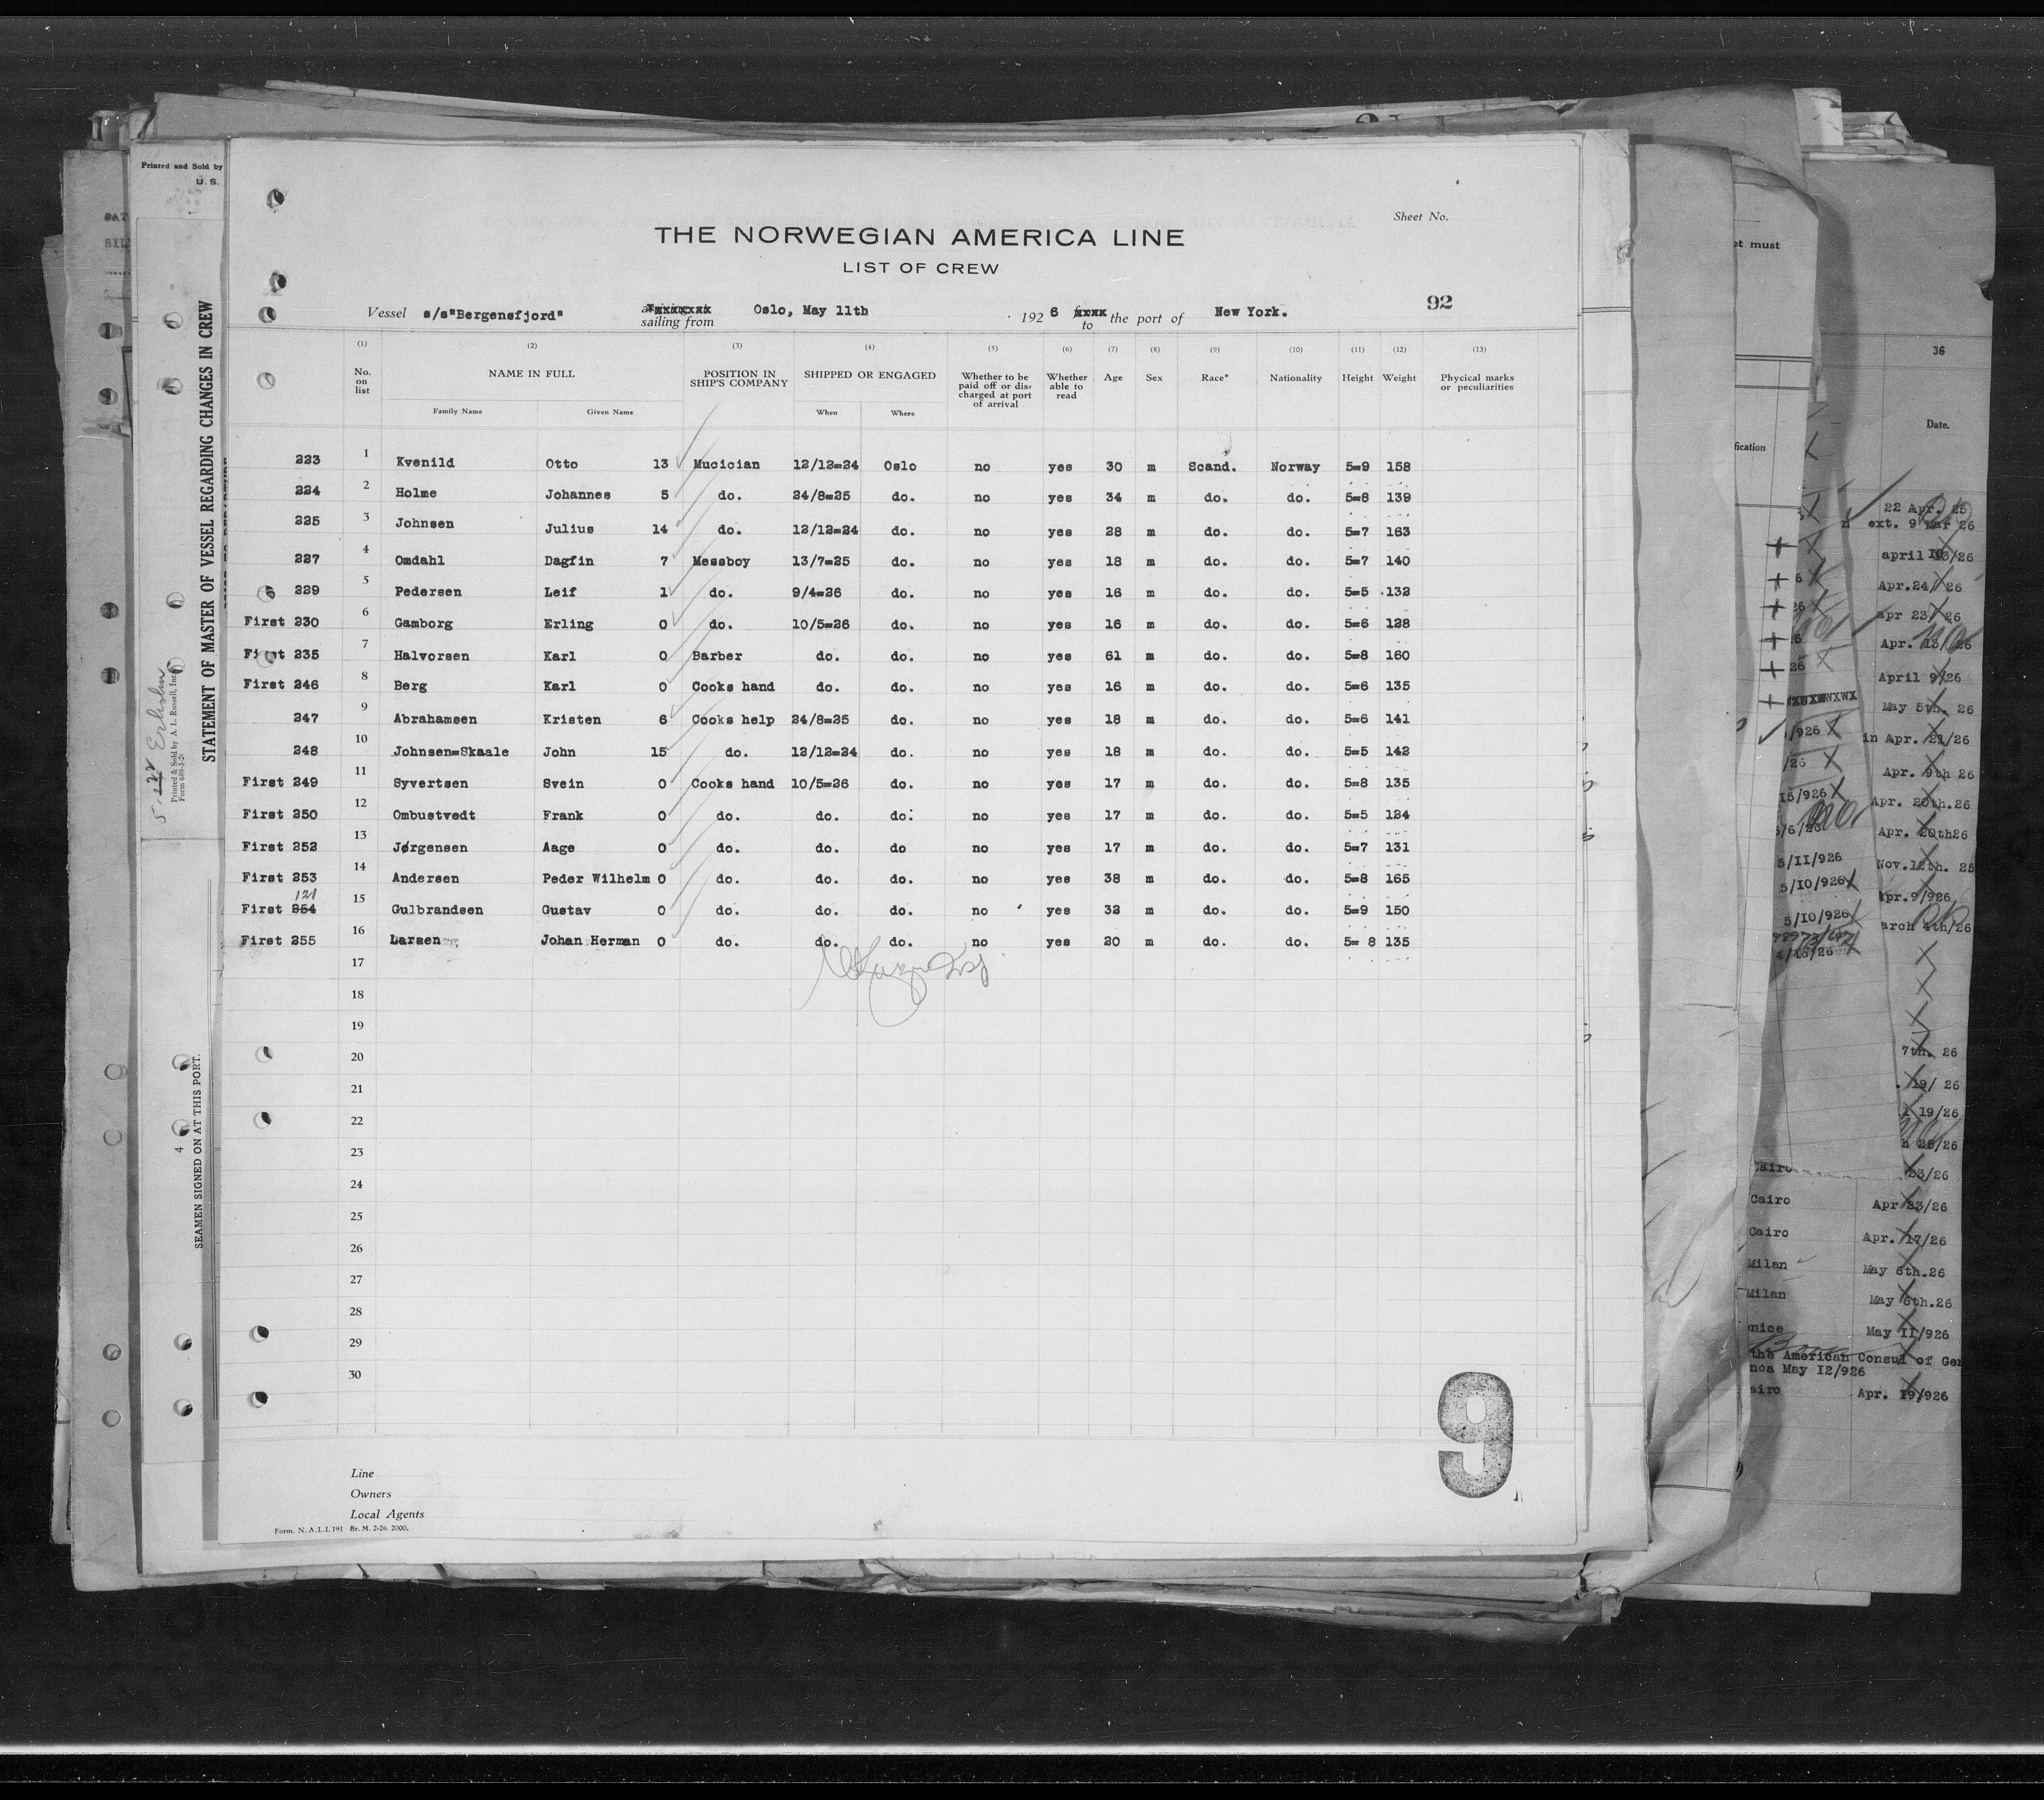 Printed and Sold by
U. S.
STATEMENT OF MASTER OF VESSEL REGARDING CHANGES IN CREW
Printed & Sold by A. L. Russell, Inc.
Form 689-J-2
SEAMEN SIGNED ON AT THIS PORT.
4
Sheet No.
THE NORWEGIAN AMERICA LINE
LIST OF CREW
92
Vessel s/s"Bergensfjord" sailing from Oslo, May 11th 192 6 to the port of New York.
(1) (2) (3) (4) (5) (6) (7) (8) (9) (10) (11) (12) (13)
No. on list NAME IN FULL POSITION IN SHIP'S COMPANY SHIPPED OR ENGAGED Whether to be paid off or discharged at port of arrival Whether able to read Age Sex Race* Nationality Height Weight Phycical marks or peculiarities
Family Name Given Name When Where
223 1 Kvenild Otto 13 Mucician 12/12=24 Oslo no yes 30 m Scand. Norway 5=9 158
224 2 Holme Johannes 5 do. 24/8=25 do. no yes 34 m do. do. 5=8 139
225 3 Johnsen Julius 14 do. 12/12=24 do. no yes 28 m do. do. 5=7 163
227 4 Omdahl Dagfin 7 Messboy 13/7=25 do. no yes 18 m do. do. 5=7 140
229 5 Pedersen Leif 1 do. 9/4=26 do. no yes 16 m do. do. 5=5 132
First 230 6 Gamborg Erling 0 do. 10/5=26 do. no yes 16 m do. do. 5=6 128
First 235 7 Halvorsen Karl 0 Barber do. do. no yes 61 m do. do. 5=8 160
First 246 8 Berg Karl 0 Cooks hand do. do. no yes 16 m do. do. 5=6 135
247 9 Abrahamsen Kristen 6 Cooks help 24/8=25 do. no yes 18 m do. do. 5=6 141
248 10 Johnsen=Skaale John 15 do. 12/12=24 do. no yes 18 m do. do. 5=5 142
First 249 11 Syvertsen Svein 0 Cooks hand 10/5=26 do. no yes 17 m do. do. 5=8 135
First 250 12 Ombustvedt Frank 0 do. do. do. no yes 17 m do. do. 5=5 124
First 252 13 Jørgensen Aage 0 do. do. do no yes 17 m do. do. 5=7 131
First 253 14 Andersen Peder Wilhelm 0 do. do. do. no yes 38 m do. do. 5=8 165
121
First 254 15 Gulbrandsen Gustav 0 do. do. do. no yes 32 m do. do. 5=9 150
First 255 16 Larsen Johan Herman 0 do. do. do. no yes 20 m do. do. 5= 8 135
17
18
19
20
21
22
23
24
25
26
27
28
29
30
9
Line
Owners
Local Agents
Form. N. A. L. I. 191 Br. M. 2-26. 2000.
36
Date.
22 Apr. 25
ext. 9 Mar 26
Apr.24/ 26
apr 23/ 26
Apr. 13/ 26
April 9/26
May 5th. 26
Apr. 21/26
Apr. 9th 26
Apr. 20th.26
Apr. 20th26
Nov.12th. 25
Apr.9/926
5/11/926
5/10/926
5/10/926
4/16/26
7th. 26
19/ 26
19/26
23/26
Cairo Apr 23/26
Cairo Apr. 17/26
Milan May 6th.26
Milan May 6th.26
May 11/926
the American Consul of
noa May 12/926
Apr. 19/926